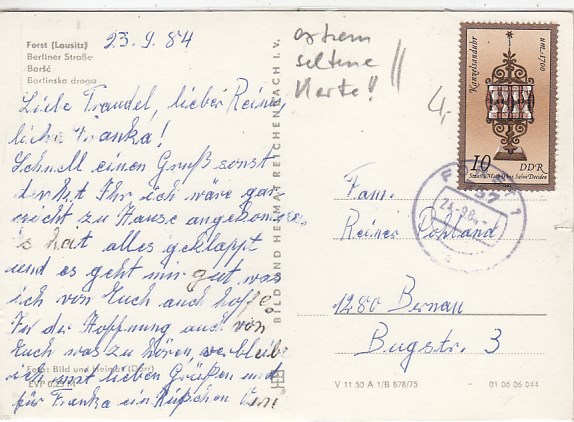 23.9.84
Forst (Lausitz)
Berliner Straße
Baršć
Barlinska droga
Liebe Traudel, lieber Reiner,
liebe Franka!
Schnell einen Gruß sonst
denkt Ihr ich wäre gar
nicht zu Hause angekommen.
Es hat alles geklappt
und es geht mir gut, was
ich von Euch auch hoffe.
In der Hoffnung auch von
Euch was zu hören, verbleibe
ich mit lieben Grüßen und
für Franka ein Küßchen
Foto: Bild und Heimat (Darr)
EVP 0,25
BILD UND HEIMAT REICHENBACH I. V.
extrem
seltene
Marke!!!
4,-
Kanzelsanduhr
um 1700
10
DDR
Staatl. Math.-Phys. Salon/Dresden
FORST 1
757
24.-9.84
Fam.
Reiner Pohland
1280 Bernau
Bugstr. 3
V 11 50 A 1/B 878/75
01 06 06 044